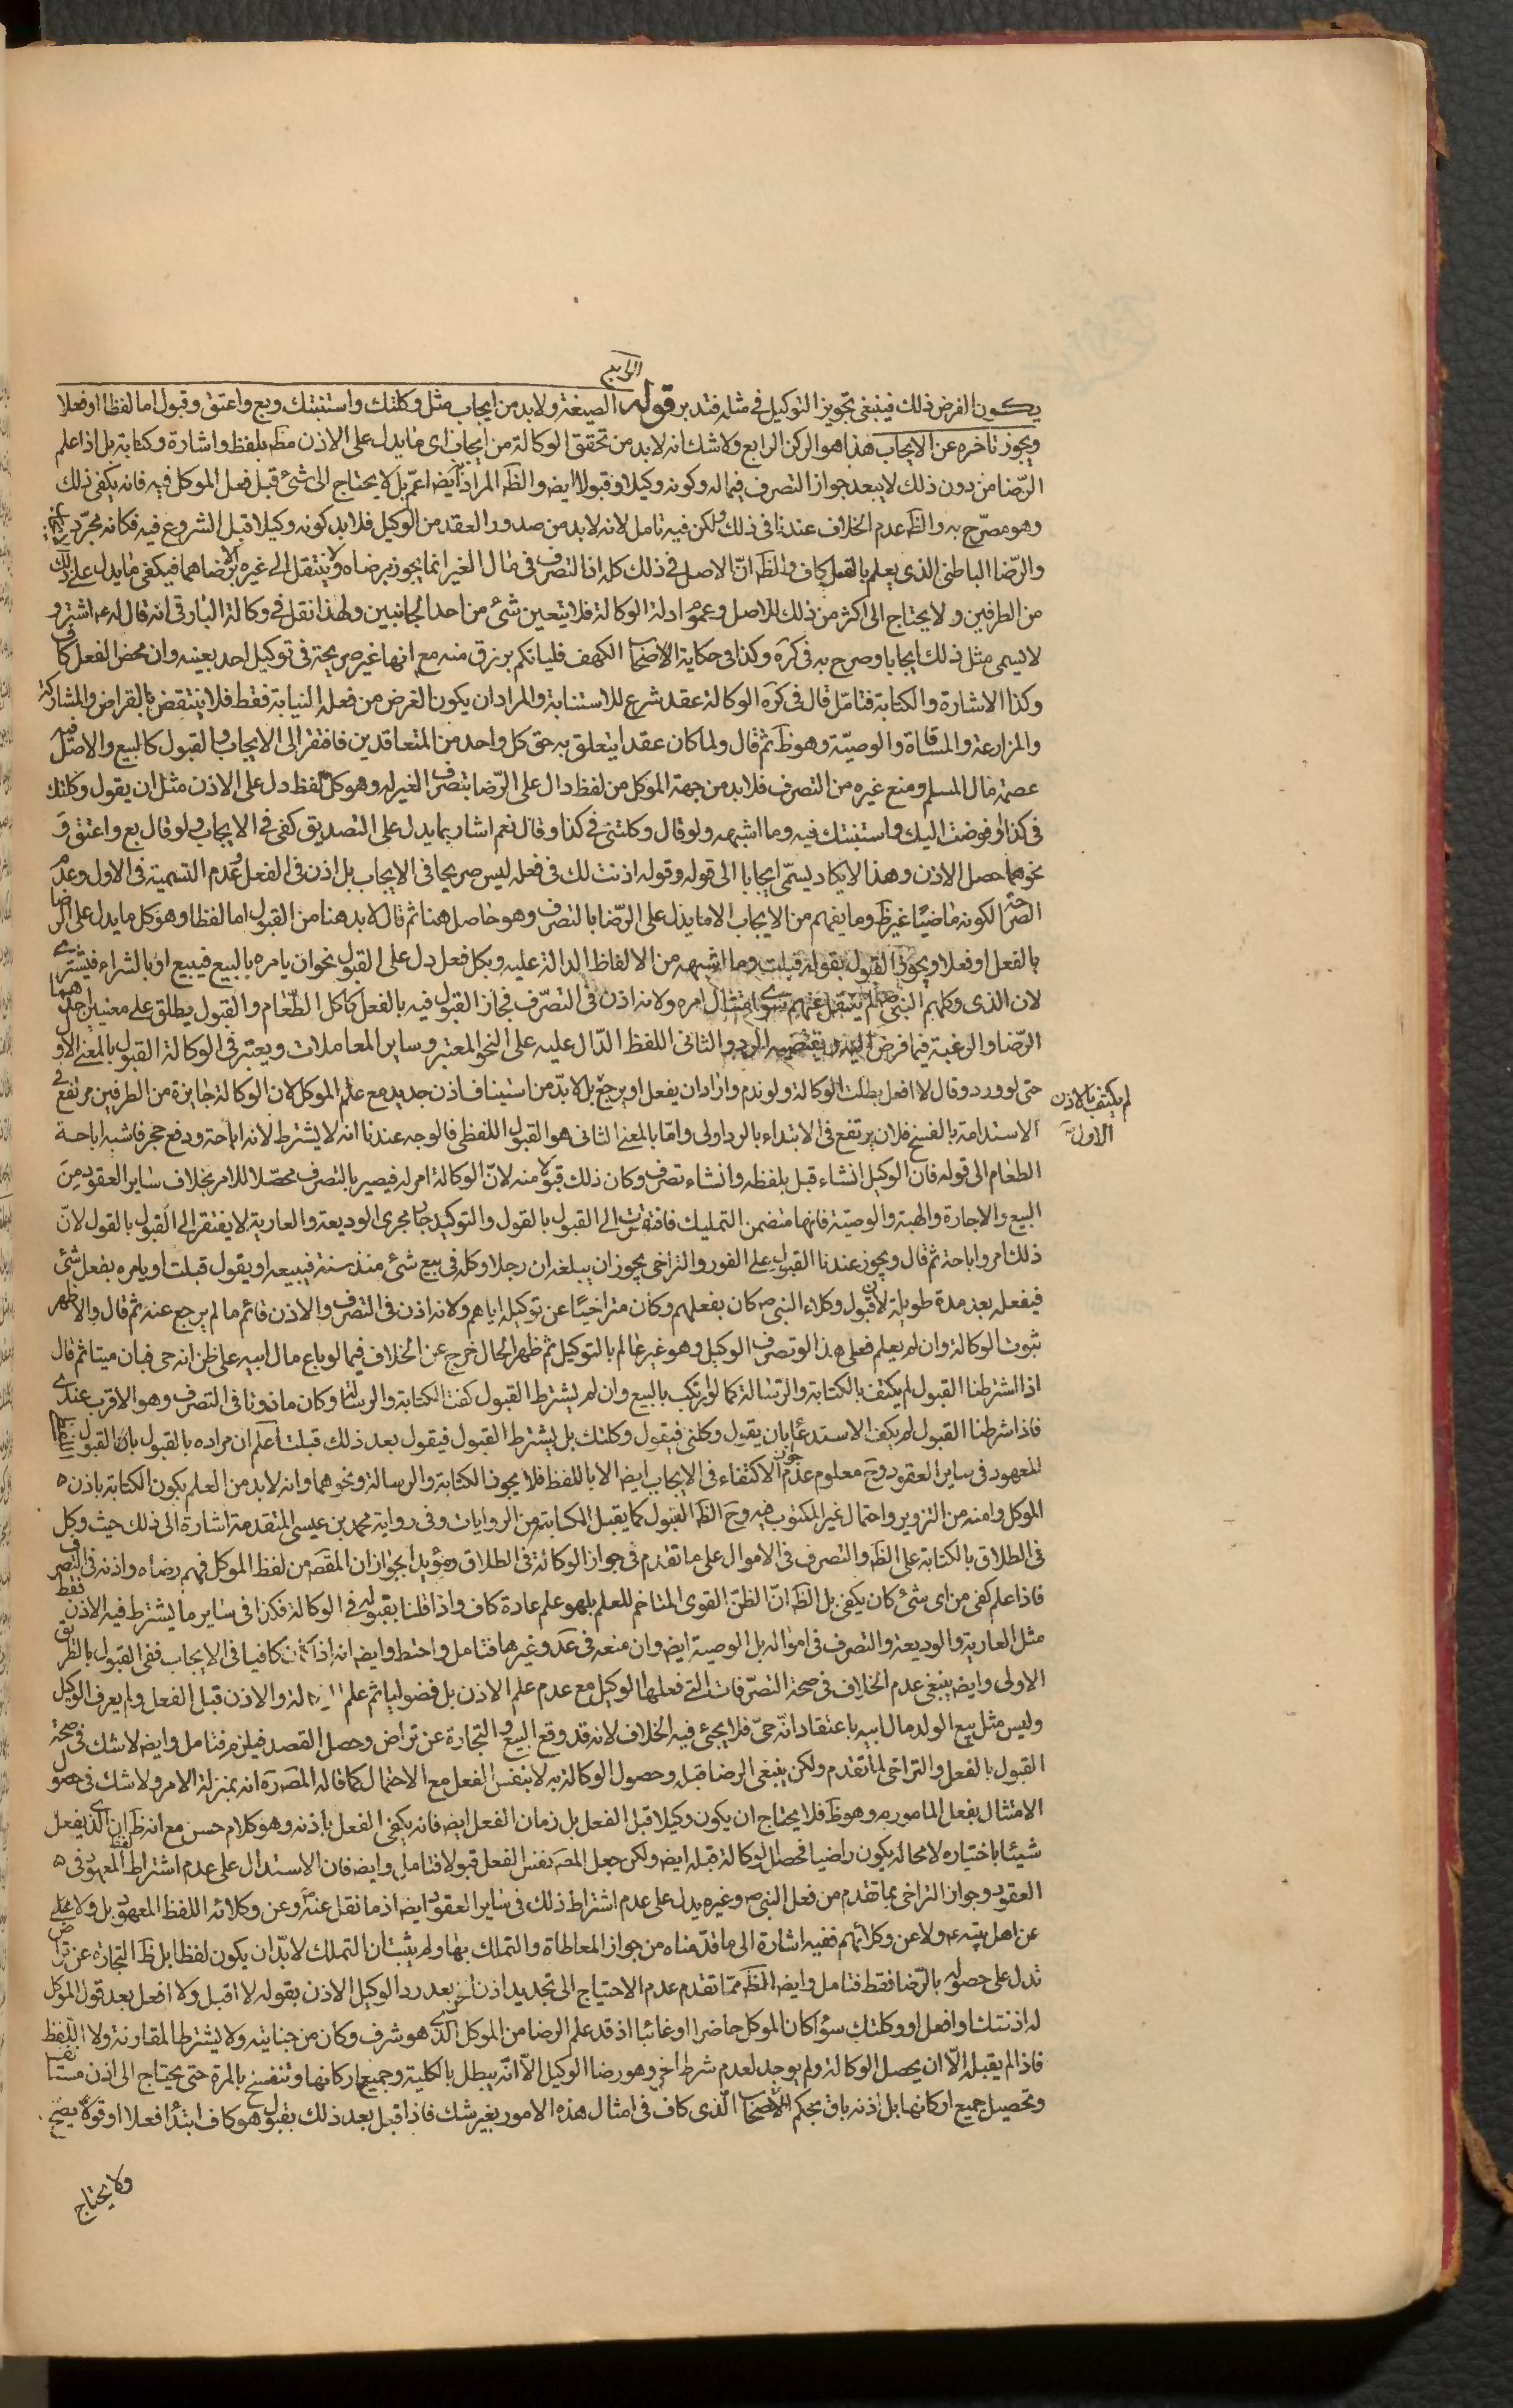 الرابع
يكون الفرض ذلك فينبغى تجويز التوكيل فى مثله فتدبر قوله الصيغة ولابد من ايجاب مثل وكلتك واستنبتك وبع واعتق وقبول اما لفظا او فعلا
ويجوز تاخره عن الايجاب هذا هو الركن الرابع ولا شك انه لابد من تحقق الوكالة من ايجاب اى ما يدل على الاذن مط بلفظ واشارة وكتابة بل اذا علم
الرّضا من دون ذلك لا يبعد جواز التصرف فماله وكونه وكيلا وقبولا ايض والظ المراد ايض اعمّ بل لا يحتاج الى شئ قبل فعل الموكل فيه فانه يكفى ذلك
وهو مصرّح به والظ عدم الخلاف عندنا فى ذلك ولكن فيه تامل لانه لابد من صدور العقد من الوكيل فلابد كونه وكيلا قبل الشروع فيه فكانه مجرّد
والرّضا الباطنى الذى يعلم بالفعل كاف والظ انّ الاصل فى ذلك كله ان التصرف فى مال الغير انما يجوز برضاه ولا ينتقل الى غيره الا برضاهما فيكفى ما يدل على ذلك
من الطرفين ولا يحتاج الى اكثر من ذلك للاصل وعموم ادلة الوكالة فلا يتعين شئ من احد الجانبين ولهذا نقل فى وكالة البارقى انه قال له ع اشتر و
لا يسمى مثل ذلك ايجابا وصرح به فى كره وكذا فى حكاية الاصحاب الكهف فلياتكم برزق منه مع انها غير صريحة فى توكيل احد بعينه وان محض الفعل كاف
وكذا الاشارة والكتابة فتامّل قال فى كره الوكالة عقد شرع للاستنابة والمراد ان يكون الغرض من فعله النيابة فقط فلا ينتقض بالقراض والمشاركة
والمزارعة والمساقاة والوصيّة وهو ظ ثم قال ولما كان عقدا يتعلق به حق كل واحد من المتعاقدين فافتقر الى الايجاب والقبول كالبيع والاصل فيه
عصمة مال المسلم ومنع غيره من التصرف فلابد من جهة الموكل من لفظ دال على الرّضا بتصرف الغير له وهو كل لفظ دل على الاذن مثل ان يقول وكلتك
فى كذا او فوضت اليك واستنبتك فيه وما اشبهه ولو قال وكلتنى فى كذا وقال نعم اشار بما يدل على التصديق كفى فى الايجاب ولو قال بع واعتق و
نحوهما حصل الاذن وهذا لا يكاد يسمّى ايجابا الى قوله وقوله اذنت لك فى فعله ليس صريحا فى الايجاب بل اذن فى الفعل عدم التسمية فى الاول وعدم
الصراحة لكونه ماضيّا غير ظ وما يفهم من الايجاب الا ما يدل على الرّضا بالتصرف وهو حاصل هنا ثم قال لابد هنا من القبول اما لفظا وهو كل ما يدل على الرضا
بالفعل او فعلا ويجوز القبول بقوله قبلت وما اشبهه من الالفاظ الدالة عليه وبكل فعل دل على القبول نحو ان يامره بالبيع فيبيع او بالشراء فيشترى
لان الذى وكلهم النبى ص لم ينقل عنهم سوى امتثال امره ولانه اذن فى التصرّف فجاز القبول فيه بالفعل كاكل الطعام والقبول يطلق على معنيين احدهما
الرّضا والرغبة فيما فرض اليه ونقيضه الرد والثانى اللفظ الدّال عليه على النحو المعتبر وساير المعاملات ويعتبر فى الوكالة القبول بالمعنى الاول
حتى لو ورد وقال لا افعل بطلت الوكالة ولو ندم واراد ان يفعل او يرجع بل لابدّ من استيناف اذن جديد مع علم الموكل لان الوكالة جايزة من الطرفين مرتفع فى
لم يكتف بالاذن
الاول
الاستدامة بالفسخ فلان يرتفع فى الابتداء بالرد اولى وامّا بالمعنى الثانى هو القبول اللفظى فالوجه عندنا انه لا يشترط لانه اباحة ودفع حجر فاشبه اباحة
الطعام الى قوله فان الوكيل انشاء قبل بلفظه وانشاء تصرف وكان ذلك قبولا منه لانّ الوكالة امر له فيصير بالتصرف محصّلا للامر بخلاف ساير العقود من
البيع والاجارة والهبة والوصيّة فانها متضمن التمليك فافتقرت الى القبول بالقول والتوكيل جار مجرى الوديعة والعارية لا يفتقر الى القبول بالقول لانّ
ذلك امر واباحة ثم قال ويجوز عندنا القبول على الفور والتراخى يجوز ان يبلغه ان رجلا وكله فى بيع شئ منذ سنة فيبيعه او يقول قبلت او يامره بفعل شئ
فيفعله بعد مدة طويلة لان قبول وكلاء النبى ص كان بفعلهم وكان متراخيّا عن توكيله اياهم ولانه اذن فى التصرف والاذن قائم ما لم يرجع عنه ثم قال والاظهر
ثبوت الوكالة وان لم يعلم فعلى هذا لو تصرف الوكيل وهو غير عالم بالتوكيل ثم ظهر الحال خرج عن الخلاف فيما لو باع مال ابيه على ظن انه حى فبان ميتا ثم قال
اذا اشترطنا القبول لم يكتف بالكتابة والرسالة كما لو ارتكب بالبيع وان لم يشترط القبول كفت الكتابة والرسالة وكان ماذونا فى التصرف وهو الاقرب عندى
فاذا شرطنا القبول لم يكف الاستدعاء بان يقول وكلنى فيقول وكلتك بل يشترط القبول فيقول بعد ذلك قبلت اعلم ان مراده بالقبول بان القبول
المعهود فى ساير العقود وح معلوم عدم جواز الاكتفاء فى الايجاب ايض الا باللفظ فلا يجوز الكتابة والرسالة ونحوهما وانه لابد من العلم بكون الكتابة باذن
الموكل وامنه من التزوير واحتمال غير المكتوب فيه وح الظ القبول كما يقبل المكاتبة من الروايات وفى رواية محمد بن عيسى المتقدمة اشارة الى ذلك حيث وكل
فى الطلاق بالكتابة على الظ والتصرف فى الاموال على ما تقدم فى جواز الوكالة فى الطلاق ومؤيد الجواز ان المقص من لفظ الموكل فهم رضاه واذنه فى التصرف
فاذا علم كفى من اى شئ كان يكفى بل الظ انّ الظنّ القوى المتاخم للعلم بل هو علم عادة كاف واذا قلنا بقبوله فى الوكالة فكذا فى ساير ما يشترط فيه الاذن فقط
مثل العارية والوديعة والتصرف فى امواله بل الوصية ايض وان منعه فى عد وغيرها فتامل واحتط وايض انه اذا كان كافيا فى الايجاب ففى القبول بالطريق
الاولى وايض ينبغى عدم الخلاف فى صحة التصرّفات التى فعلها الوكيل مع عدم علم الاذن بل فضوليا ثم علم والاذن قبل الفعل ولم يعرف الوكيل
وليس مثل بيع الولد مال ابيه باعتقاد انّه حىّ فلا يجئ فيه الخلاف لانه قد وقع البيع والتجارة عن تراض وحصل القصد فيلزم فتامل وايض لا شك فى صحة
القبول بالفعل والتراخى لما تقدم ولكن ينبغى الرضا قبله وحصول الوكالة به لا بنفس الفعل مع الاحتمال كما قاله المص ره انه بمنزلة الامر ولا شك فى حصول
الامتثال بفعل المامور به وهو ظ فلا يحتاج ان يكون وكيلا قبل الفعل بل زمان الفعل ايض فانه يكفى الفعل باذنه وهو كلام حسن مع انه ظ ان الذى يفعل
شيئا باختياره لا محالة يكون راضيا فحصل الوكالة قبله ايض ولكن جعل المص نفس الفعل قبولا فتامل وايض فان الاستدلال على عدم اشتراط لفظ المعهود فى
العقود وجواز التراخى بما تقدم من فعل النبى ص وغيره يدل على عدم اشتراط ذلك فى ساير العقود ايض اذ ما نقل عنه وعن وكلائه اللفظ المعهود بل ولا
عن اهل بيته ع ولا عن وكلائهم ففيه اشارة الى ما قدّمناه من جواز المعاطاة والتملك بها ولم يثبت ان التملك لابدّ ان يكون لفظا بل ظ التجارة عن تراض
تدل على حصوله بالرّضا فقط فتامل وايض الظ ممّا تقدم عدم الاحتياج الى تجديد اذن اخر بعد رد الوكيل الاذن بقوله لا اقبل ولا افعل بعد قول الموكل
له اذنتك او افعل او وكلتك سواء كان الموكل حاضرا او غائبا اذ قد علم الرضا من الموكل الذى هو شرف وكان من جنايته ولا يشترط المقارنة ولا اللفظ
فاذا لم يقبله الّا ان يحصل الوكالة ولم يوجد لعدم شرط اخر وهو رضا الوكيل الّا انّه يبطل بالكلية وجميع اركانها وتنفسخ بالمرة حتى يحتاج الى اذن مستانف
وتحصيل جميع اركانها بل اذنه باق بحكم الاستصحاب الّذى كاف فى امثال هذه الامور بغير شك فاذا قبل بعد ذلك بقبول هو كاف ابتداً فعلا او قولا يصح
ولا يحتاج